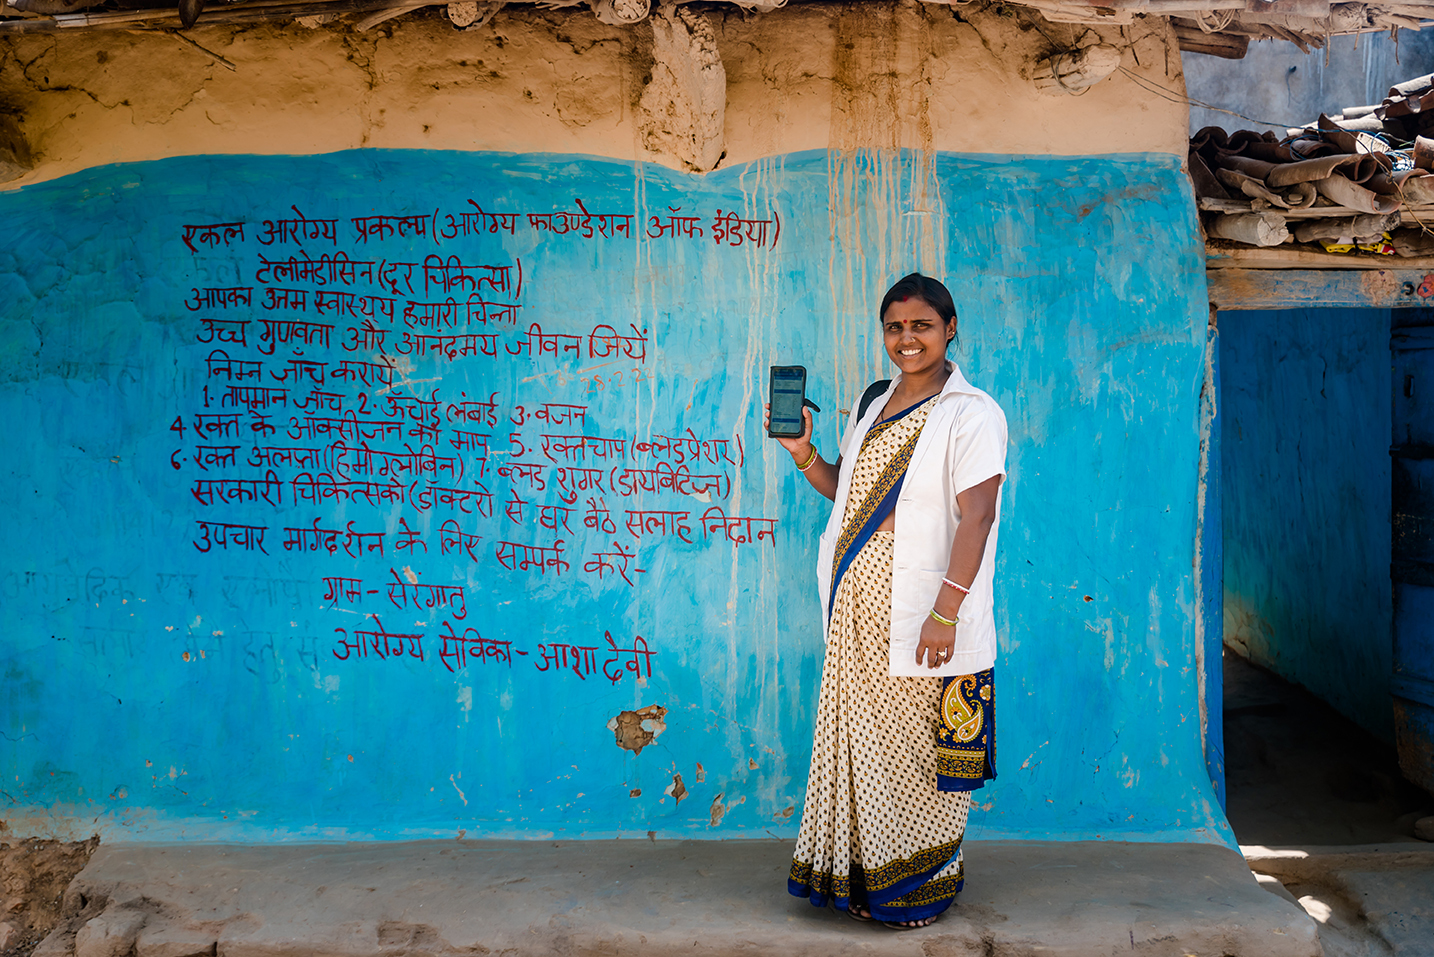 एकल आरोग्य प्रकल्प (आरोग्य फाउण्डेशन ऑफ इंडिया)
टेलीमेडीसिन (दूर चिकित्सा)
आपका उत्तम स्वास्थ्य हमारी चिन्ता
उच्च गुणवता और आनंदमय जीवन जियें
निम्न जाँच करायें
1. तापमान जाँच 2. ऊँचाई लंबाई 3. वजन
4 रक्त के ऑक्सीजन का माप 5. रक्तचाप (ब्लडप्रेशर)
6. रक्त अल्पता (हिमोग्लोबिन) 7. ब्लड शुगर (डायबिटिज)
सरकारी चिकित्सको (डॉक्टरो से घर बैठे सलाह निदान
उपचार मार्गदर्शन के लिए सम्पर्क करें-
ग्राम - सेरेंगातु
आरोग्य सेविका - आशा देवी